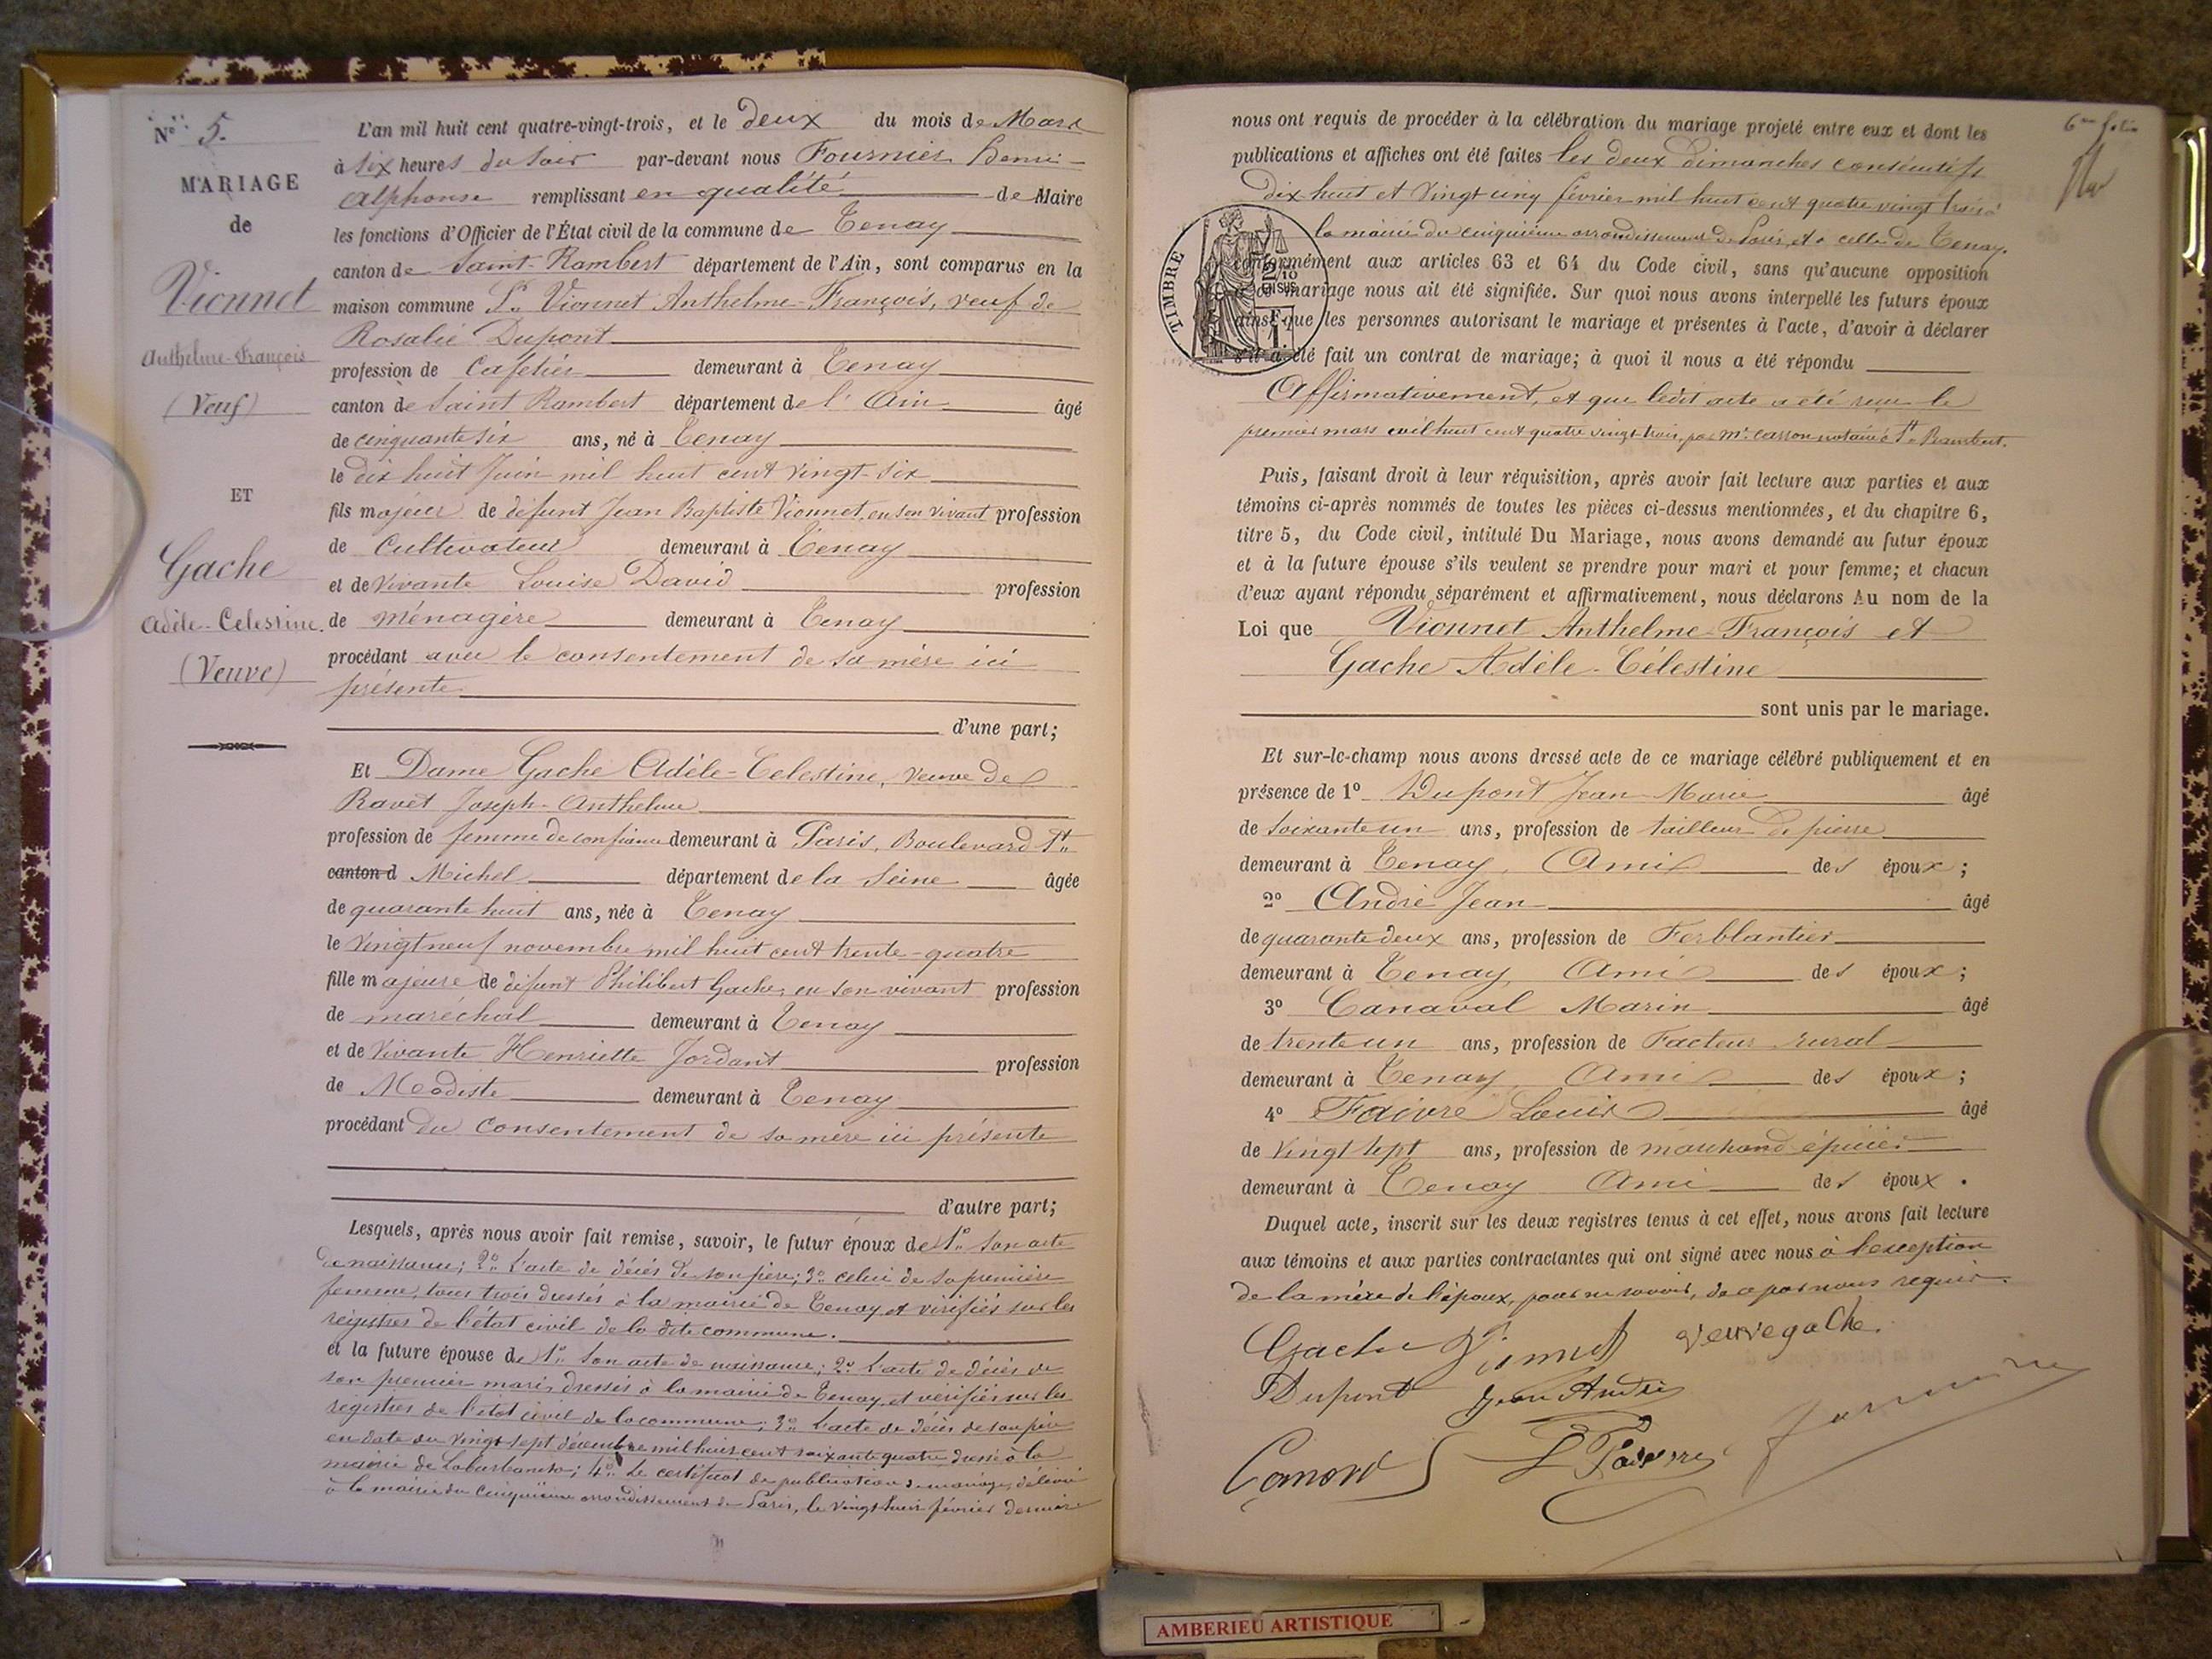 N° 5.
MARIAGE
de
Vionnet
Anthelme-François
(Veuf)
ET
Gache
Adèle-Celestine.
(Veuve)
L'an mil huit cent quatre-vingt-trois, et le deux du mois de Mars
à six heures du soir par-devant nous Fournier Henri-
Alphonse remplissant en qualité de Maire
les fonctions d'Officier de l'État civil de la commune de Tenay
canton de Saint-Rambert département de l'Ain, sont comparus en la
maison commune Sr Vionnet Anthelme-François, veuf de
Rosalie Dupont
profession de Cafetier demeurant à Tenay
canton de Saint Rambert département de l'Ain âgé
de cinquante six ans, né à Tenay
le dix huit Juin mil huit cent vingt-six
fils majeur de défunt Jean Baptiste Vionnet, en son vivant profession
de Cultivateur demeurant à Tenay
et de vivante Louise David profession
de ménagère demeurant à Tenay
procédant avec le consentement de sa mère ici
présente
d'une part;
Et Dame Gache Adèle-Celestine, veuve de
Ravet Joseph-Anthelme
profession de femme de confiance demeurant à Paris, Boulevard St
canton d Michel département de la Seine âgée
de quarante huit ans, née à Tenay
le vingt neuf novembre mil huit cent trente-quatre
fille majeure de défunt Philibert Gache, en son vivant profession
de maréchal demeurant à Tenay
et de vivante Henriette Jordant profession
de Modiste demeurant à Tenay
procédant du consentement de sa mère ici présente
d'autre part;
Lesquels, après nous avoir fait remise, savoir, le futur époux de 1° son acte
de naissance; 2° l'acte de décès de son père; 3° celui de sa première
femme, tous trois dressés à la mairie de Tenay et vérifiés sur les
registres de l'état civil de la dite commune.
et la future épouse de 1° son acte de naissance; 2° l'acte de décès de
son premier mari, dressés à la mairie de Tenay, et vérifiés sur les
registres de l'état civil de la commune; 3° l'acte de décès de son père
en date du vingt sept décembre mil huit cent soixante quatre dressé à la
mairie de; 4° le certificat de publication de mariage, délivré
à la mairie du cinquième arrondissement de Paris, le vingt huit février dernier
6me folio
nous ont requis de procéder à la célébration du mariage projeté entre eux et dont les
publications et affiches ont été faites les deux dimanches consécutifs
dix huit et vingt cinq février mil huit cent quatre vingt trois à
la mairie du cinquième arrondissement de Paris, et à celle de Tenay.
conformément aux articles 63 et 64 du Code civil, sans qu'aucune opposition
à ce mariage nous ait été signifiée. Sur quoi nous avons interpellé les futurs époux
ainsi que les personnes autorisant le mariage et présentes à l'acte, d'avoir à déclarer
s'il a été fait un contrat de mariage; à quoi il nous a été répondu
TIMBRE
2/10
EN SUS
1 F.
Affirmativement, et que ledit acte a été reçu le
premier mars mil huit cent quatre vingt-trois, par Me Carron notaire à St Rambert.
Puis, faisant droit à leur réquisition, après avoir fait lecture aux parties et aux
témoins ci-après nommés de toutes les pièces ci-dessus mentionnées, et du chapitre 6,
titre 5, du Code civil, intitulé Du Mariage, nous avons demandé au futur époux
et à la future épouse s'ils veulent se prendre pour mari et pour femme; et chacun
d'eux ayant répondu séparément et affirmativement, nous déclarons Au nom de la
Loi que Vionnet Anthelme-François et
Gache Adèle-Célestine
sont unis par le mariage.
Et sur-le-champ nous avons dressé acte de ce mariage célébré publiquement et en
présence de 1° Dupont Jean-Marie âgé
de soixante un ans, profession de tailleur de pierre
demeurant à Tenay, Ami des époux;
2° André Jean âgé
de quarante deux ans, profession de Ferblantier
demeurant à Tenay, Ami des époux;
3° Canaval Marin âgé
de trente un ans, profession de Facteur rural
demeurant à Tenay, Ami des époux;
4° Faivre Louis âgé
de vingt sept ans, profession de marchand épicier
demeurant à Tenay Ami des époux.
Duquel acte, inscrit sur les deux registres tenus à cet effet, nous avons fait lecture
aux témoins et aux parties contractantes qui ont signé avec nous à l'exception
de la mère de l'époux, pour ne savoir, de ce par nous requis.
Gache Vionnet veuvegache.
Dupont Jean André
L Faivre
AMBERIEU ARTISTIQUE